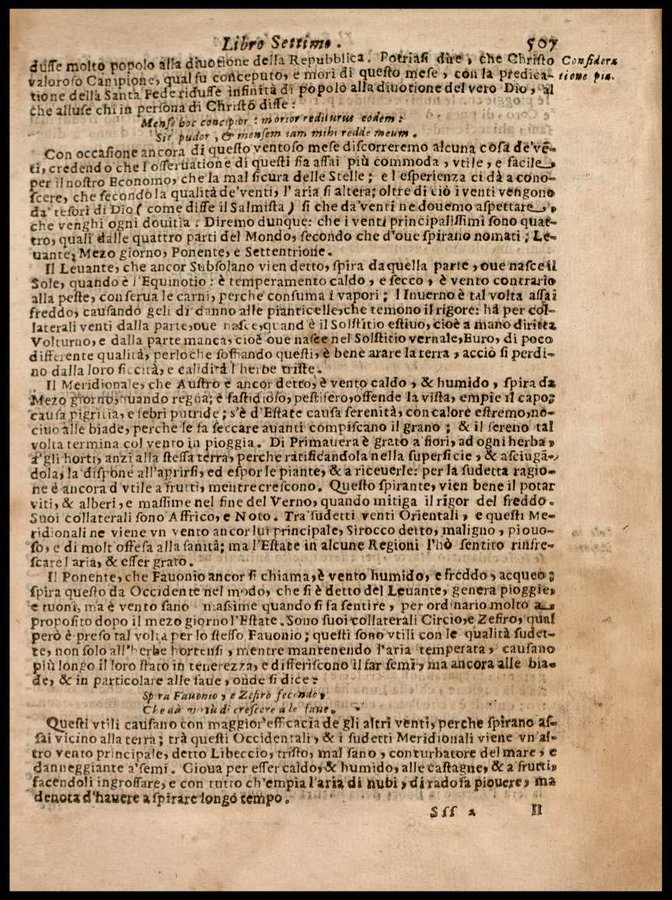 Libro Settimo. 507
dusse molto popolo alla diuotione della Republica. Potriasi dire, che Christo
valoroso Campione, qual fu conceputo, e morì di questo mese, con la predica-
tione della Santa Fede ridusse infinità di popolo alla diuotione del vero Dio, al
che alluse chi in persona di Christo disse:
Considera
tione pia.
Mense hoc concipior: morior rediturus eodem:
Sir pudor, & mensem iam mihi redde meum.
Con occasione ancora di questo ventoso mese discorreremo alcuna cosa de'ven-
ti, credendo che l'osseruatione di questi sia assai più commoda, vtile, e facile,
per il nostro Economo, che la mal sicura delle Stelle; e l'esperienza ci dà a cono-
scere, che secondo la qualità de'venti, l'aria si altera; oltre di ciò i venti vengono
da' tesori di Dio (come disse il Salmista) sì che da'venti ne douemo aspettare,
che venghi ogni douitia: Diremo dunque: che i venti principalissimi sono quat-
tro, quali dalle quattro parti del Mondo, secondo che d'oue spirano nomati; Le-
uante, Mezo giorno, Ponente, e Settentrione.
Il Leuante, che ancor Subsolano vien detto, spira da quella parte, oue nasce il
Sole, quando è l'Equinotio: è temperamento caldo, e secco, è vento contrario
alla peste, conserua le carni, perche consuma i vapori; l'Inuerno è tal volta assai
freddo, causando geli di danno alle pianticelle, che temono il rigore: hà per col-
laterali venti dalla parte, oue nasce, quand'è il Solstitio estiuo, cioè a mano diritta
Volturno, e dalla parte manca, cioè oue nasce nel Solstitio vernale, Euro, di poco
differente qualità, perloche soffiando questi, è bene arare la terra, acciò si perdi-
no dalla loro siccità, e calidità l'herbe triste.
Il Meridionale, che Austro è ancor detto, è vento caldo, & humido, spira da
Mezo giorno, quando regna; è fastidioso, pestifero, offende la vista, empie il capo;
causa pigritia, e febri putride; s'è d'Estate causa serenità, con calore estremo, no-
ciuo alle biade, perche le fa seccare auanti compiscano il grano; & il sereno tal
volta termina col vento in pioggia. Di Primauera è grato a'fiori, ad ogni herba,
a gli horti, anzi alla stessa terra, perche ratificandola nella superficie, & asciugà-
dola, la dispone all'aprirsi, ed espor le piante, & a riceuerle: per la sudetta ragio-
ne è ancora d'vtile a'frutti, mentre crescono. Questo spirante, vien bene il potar
viti, & alberi, e massime nel fine del Verno, quando mitiga il rigor del freddo.
Suoi collaterali sono Affrico, e Noto. Tra'sudetti venti Orientali, e questi Me-
ridionali ne viene vn vento ancor lui principale, Sirocco detto, maligno, piouo-
so, e di molt'offesa alla sanità; ma l'Estate in alcune Regioni l'hò sentito rinfre-
scare l'aria, & esser grato.
Il Ponente, che Fauonio ancor si chiama, è vento humido, e freddo, acqueo;
spira questo da Occidente nel modo, che si è detto del Leuante, genera pioggie,
e tuoni, ma è vento sano massime quando si fa sentire, per ordinario molto a
proposito dopo il mezo giorno l'Estate. Sono suoi collaterali Circio, e Zefiro, qual
però è preso tal volta per lo stesso Fauonio; questi sono vtili con le qualità sudet-
te, non solo all'herbe hortensi, mentre mantenendo l'aria temperata, causano
più longo il loro stato in tenerezza, e differiscono il far semi, ma ancor alle bia-
de, & in particolare alle faue, onde si dice:
Spira Fauonio, e Zefiro secondo,
Che dà virtù di crescere a le faue.
Questi vtili causano con maggior'efficacia de gli altri venti, perche spirano as-
sai vicino alla terra; trà questi Occidentali, & i sudetti Meridionali viene vn al-
tro vento principale, detto Libeccio, tristo, mal sano, conturbatore del mare, e
danneggiante a'semi. Gioua per esser caldo, & humido, alle castagne, & a frutti,
facendoli ingrossare, e con tutto ch'empia l'aria di nubi, di rado fa piouere, ma
denota d'hauere a spirare longo tempo.
Sss 2 Il